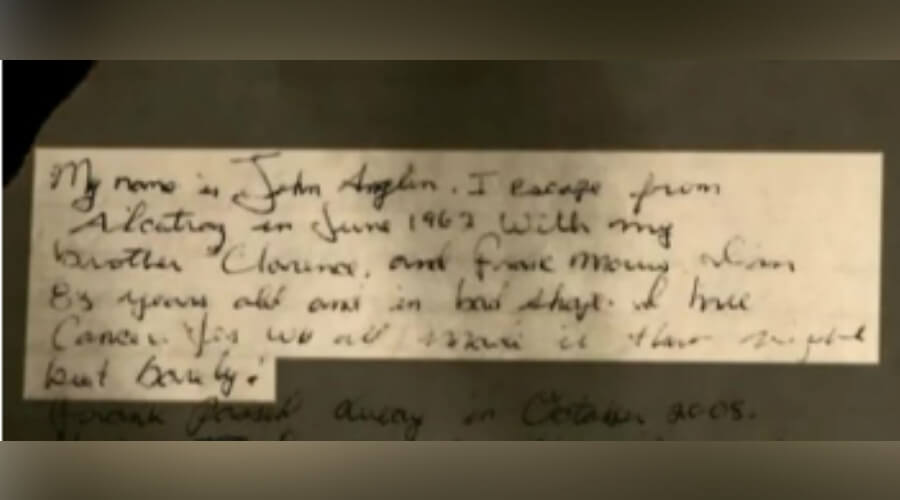 My name is John Anglin. I escape from
Alcatraz in June 1962 With my
brother Clarence, and Frank Morris I'm
83 years old and in bad shape. I have
Cancer. Yes we all made it that night
but barely!
Frank passed away in October 2008.